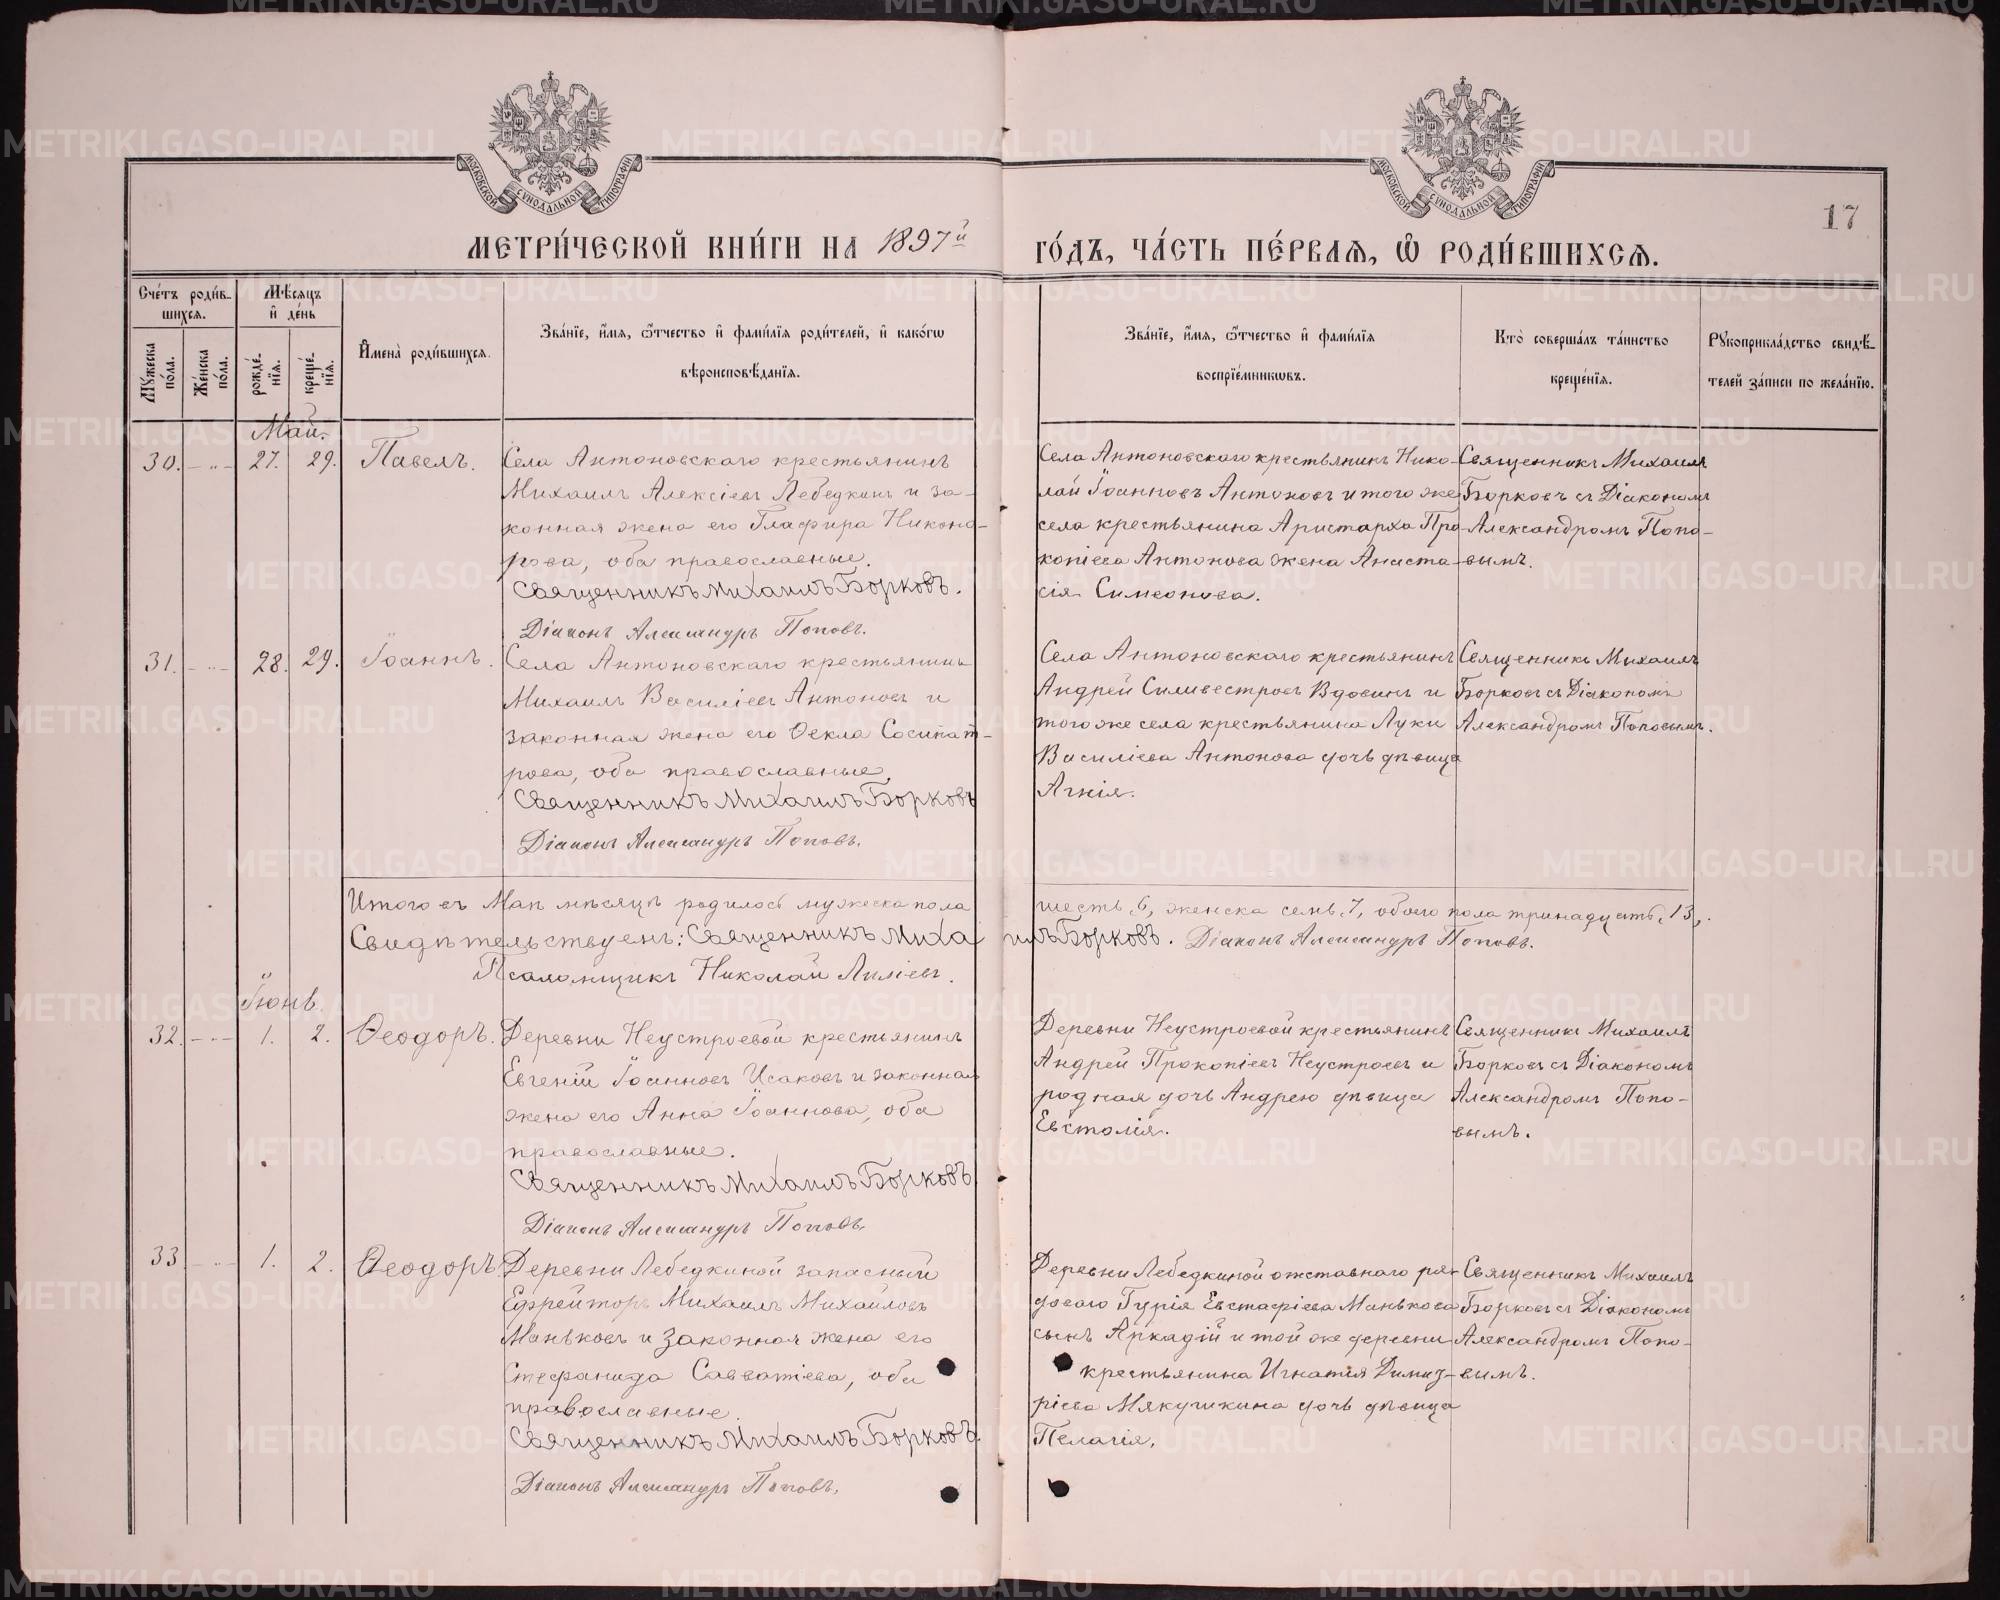 МОСКОВСКОЙ СѴНОДАЛЬНОЙ ТИПОГРАФІИ
МОСКОВСКОЙ СѴНОДАЛЬНОЙ ТИПОГРАФІИ
17
МЕТРИ́ЧЕСКОЙ КНИ́ГИ НА 1897й ГО́ДЪ, ЧА́СТЬ ПЕ́РВАѦ, Ѽ РОДИ́ВШИХСѦ.
Счетъ роди́в-
шихсѧ.
Мѣ́сѧцъ
и҆ де́нь
Мꙋжеска по́ла.
Же́нска по́ла.
рожде́-нїѧ.
креще́-нїѧ.
И҆мена̀ роди́вшихсѧ.
Зва́нїе, и҆́мѧ, ѻ҆́тчество и҆ фами́лїѧ роди́телей, и҆ како́гѡ
вѣроисповѣ́данїѧ.
Зва́нїе, и҆́мѧ, ѻ҆́тчество и҆ фами́лїѧ
воспрїе́мникѡвъ.
Кто̀ соверша́лъ та́инство
креще́нїѧ.
Рꙋкоприкла́дство свидѣ́-
телей за́писи по жела́нїю.
Май.
30. — „ — 27. 29. Павелъ.
Села Антоновскаго крестьянинъ
Михаилъ Алексіевъ Лебедкинъ и за-
конная жена его Глафира Никоно-
рова, оба православные.
Священникъ Михаилъ Борковъ.
Діаконъ Александръ Поповъ.
Села Антоновскаго крестьянинъ Нико-
лай Іоанновъ Антоновъ и того же
села крестьянина Аристарха Про-
копіева Антонова жена Анаста-
сія Симеонова.
Священникъ Михаилъ
Борковъ съ Діакономъ
Александромъ Попо-
вымъ.
31. — „ — 28. 29. Іоаннъ.
Села Антоновскаго крестьянинъ
Михаилъ Василіевъ Антоновъ и
законная жена его Ѳекла Сосипат-
рова, оба православные.
Священникъ Михаилъ Борковъ
Діаконъ Александръ Поповъ.
Села Антоновскаго крестьянинъ
Андрей Силивестровъ Вдовинъ и
того же села крестьянина Луки
Василіева Антонова дочь дѣвица
Агнія.
Священникъ Михаилъ
Борковъ съ Діакономъ
Александромъ Поповымъ.
Итого въ Маѣ мѣсяцѣ родилось мужеска пола шесть „6„ женска семь „7„ обоего пола тринадцать „13„.
Свидѣтельствуемъ: Священникъ Михаилъ Борковъ. Діаконъ Александръ Поповъ.
Псаломщикъ Николай
Іюнь
32. — „ — 1. 2. Ѳеодоръ.
Деревни Неустроевой крестьянинъ
Евгеній Іоанновъ Исаковъ и законная
жена его Анна Іоаннова, оба
православные.
Священникъ Михаилъ Борковъ
Діаконъ Александръ Поповъ
Деревни Неустроевой крестьянинъ
Андрей Прокопіевъ Неустроевъ и
родная дочь Андрею дѣвица
Евстолія.
Священникъ Михаилъ
Борковъ съ Діакономъ
Александромъ Попо-
вымъ.
33 — „ — 1. 2. Ѳеодоръ.
Деревни Лебедкиной запасный
Ефрейторъ Михаилъ Михайловъ
Маньковъ и законная жена его
Стефанида Савватіева, оба
православные.
Священникъ Михаилъ Борковъ.
Діаконъ Александръ Поповъ.
Деревни Лебедкиной отставнаго ря-
доваго Гурія Евстафіева Манькова
сынъ Аркадій и той же деревни
крестьянина Игнатія Димит-
ріева Мякушкина дочь дѣвица
Пелагія.
Священникъ Михаилъ
Борковъ съ Діакономъ
Александромъ Попо-
вымъ.
METRIKI.GASO-URAL.RU